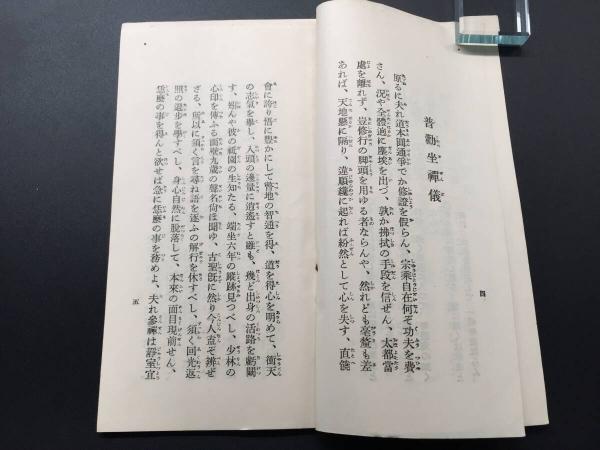 普勸坐禪儀
原るに夫れ道本圓通爭でか修證を假らん、宗乘自在何ぞ功夫を費
さん、況や全體逈に塵埃を出づ、孰か拂拭の手段を信ぜん、大都當
處を離れず、豈修行の脚頭を用ゆる者ならんや、然れども毫釐も差
あれば、天地懸に隔り、違順纔に起れば紛然として心を失す、直饒
四
會に誇り悟に豐かにして瞥地の智通を得、道を得心を明めて、衝天
の志氣を擧し、入頭の邊量に逍遙すと雖も、幾ど出身の活路を虧闕
す、矧んや彼の祇園の生知たる、端坐六年の蹤跡見つべし、少林の
心印を傳ふる面壁九歳の聲名尚ほ聞ゆ、古聖既に然り今人盍ぞ辨ぜ
ざる、所以に須く言を尋ね語を逐ふの解行を休すべし、須く囘光返
照の退步を學すべし、身心自然に脫落して、本來の面目現前せん、
恁麽の事を得んと欲せば急に恁麽の事を務めよ、夫れ參禪は靜室宜
五